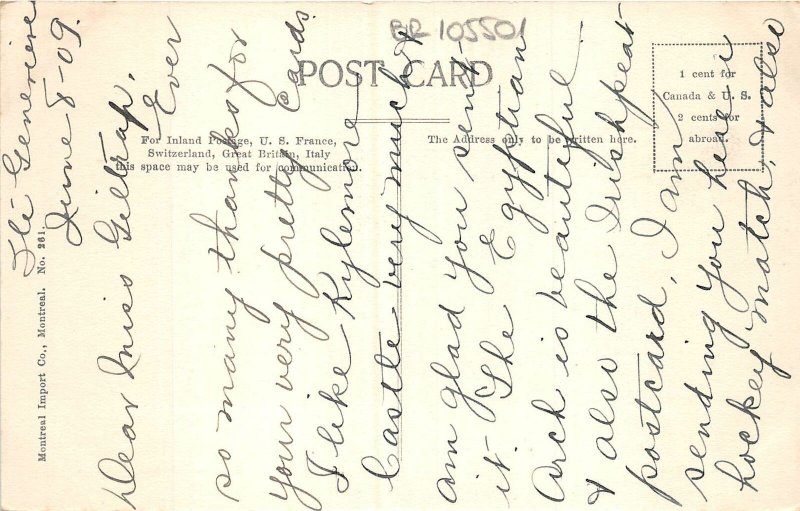 Ste Genevieve
June 8-09.
Dear Miss Gilltrap,
Ever
so many thanks for
your very pretty cards
I like Kylemore
Castle very much &
am glad you sent
it. The Egyptian
Arch is beautiful
& also the Irish peat
postcard. I am
sending you here a
hockey match, & also
BR 105501
POST CARD
1 cent for
Canada & U. S.
2 cents for
abroad.
For Inland Postage, U. S. France,
Switzerland, Great Britain, Italy
this space may be used for communication.
The Address only to be written here.
Montreal Import Co., Montreal. No. 261.